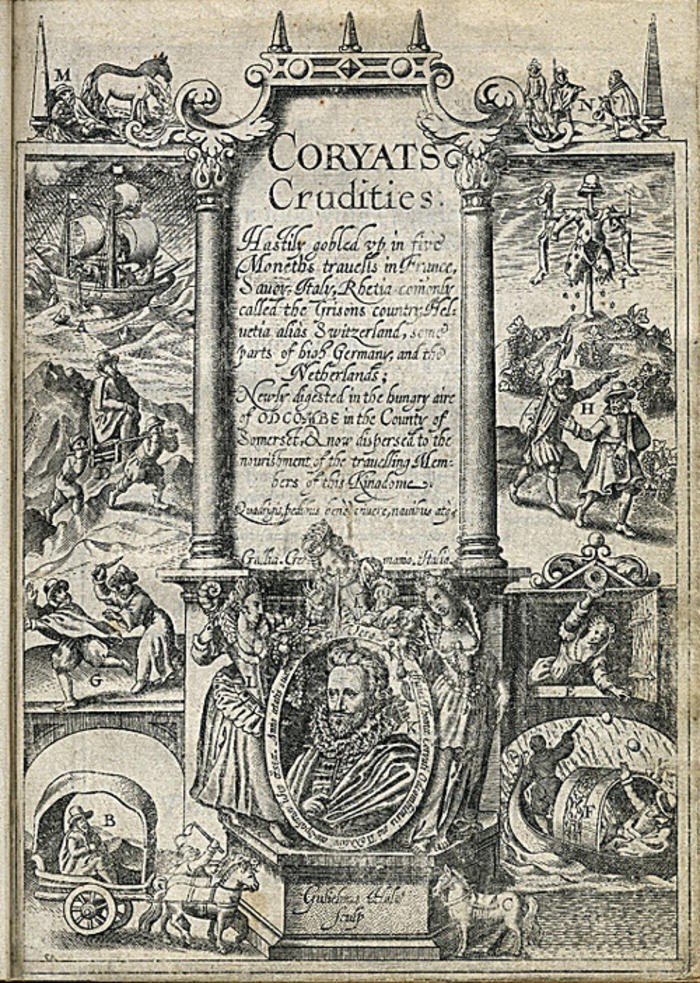 M
N
CORYATS
Crudities:
Hastily gobled vp in five
Moneths travells in France,
Savoy, Italy, Rhetia comonly
called the Grisons country, Hel-
vetia aliàs Switzerland, some
parts of high Germany, and the
Netherlands;
Newly digested in the hungry aire
of ODCOMBE in the County of
Somerset, & now dispersed to the
nourishment of the travelling Mem-
bers of this Kingdome.
Quadrigis, pedibus bene
Gallia. Ger- mania. Italia.
A
I
H
G
L
B
F
C
Gulielmus Hole
sculp